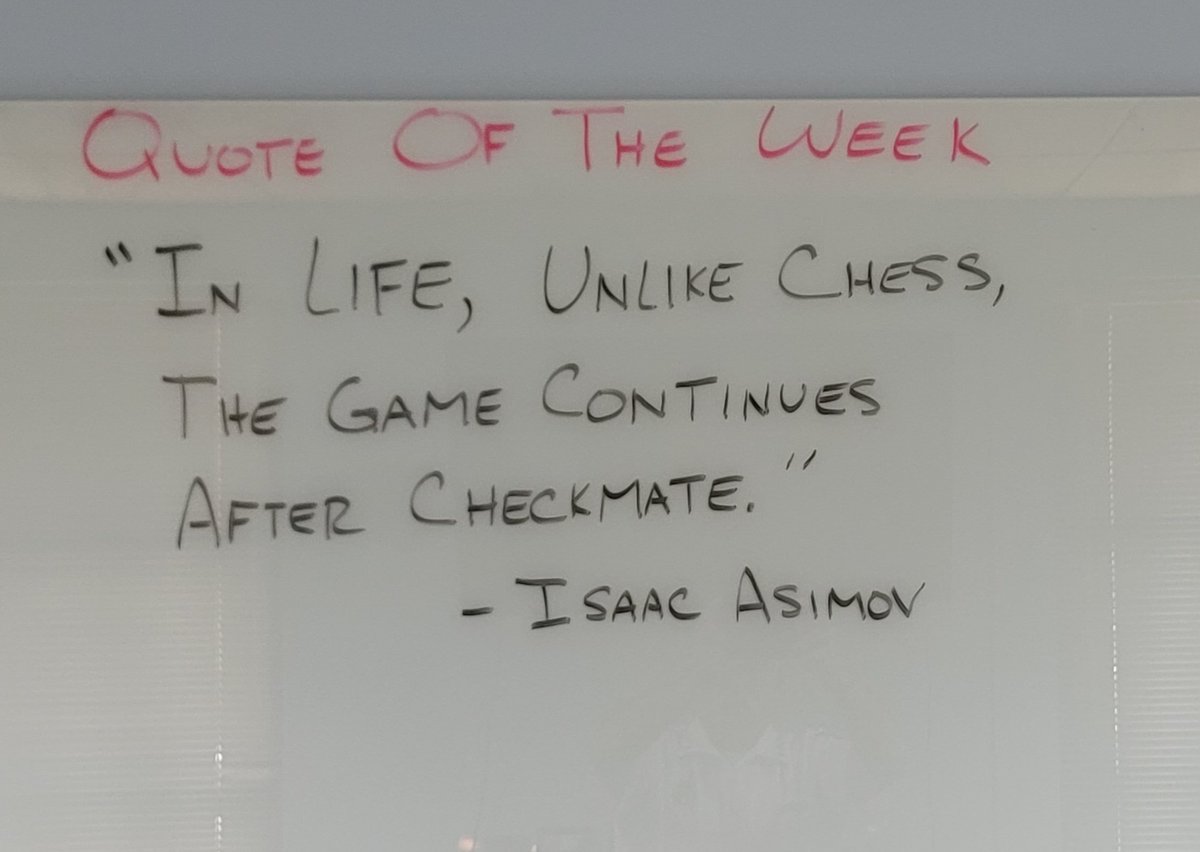 QUOTE OF THE WEEK
"IN LIFE, UNLIKE CHESS,
THE GAME CONTINUES
AFTER CHECKMATE."
- ISAAC ASIMOV